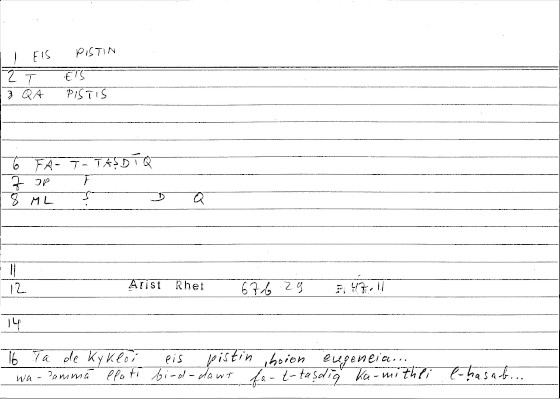 1 EIS PISTIN
2 T EIS
3 QA PISTIS
6 FA- T-TAṢDĪQ
7 JP F
8 ML Ṣ D Q
11
12 Arist Rhet 67b29 47.11
14
16 Ta de kykloi eis pistin, hoion eugeneia...
wa-ʾammā llatī bi-d-dawr fa-t-taṣdīq ka-mithli l-ḥasab...